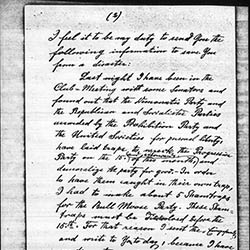 (2)
I feel it to be my duty to send You the
following information to save You
from a disaster:
Last night I have been in the
Club-Meeting with some Senators and
found out that the Democratic Party and
the Republican and Socialistic Parties
annexed by the Prohibition Party and
the United Societies for personal liberty,
have laid traps, to the Progressive
Party on the 15th of this month, and
demoralize the party for good. In order
to have them caught in their own traps,
I had to make about 5
for the Bull Moose Party. These
traps must be before the
15th. For that reason I sent the
and write to You to day, because I have